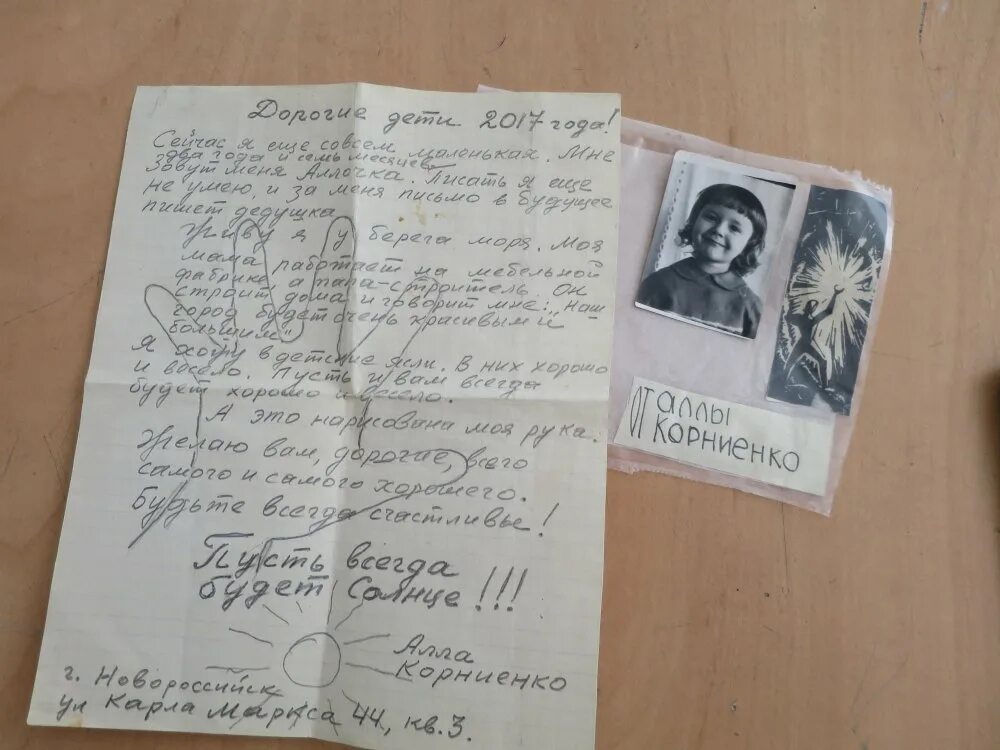 Дорогие дети 2017 года!
Сейчас я еще совсем маленькая. Мне
два года и семь месяцев.
Зовут меня Аллочка. Писать я еще
не умею, и за меня письмо в будущее
пишет дедушка.
Живу я у берега моря. Моя
мама работает на мебельной
фабрике, а папа-строитель. Он
строит дома и говорит мне: „Наш
город будет очень красивым и
большим"
Я хожу в детские ясли. В них хорошо
и весело. Пусть и вам всегда
будет хорошо и весело.
А это нарисована моя рука.
Желаю вам, дорогие, всего
самого и самого хорошего.
Будьте всегда счастливы!
Пусть всегда
будет Солнце!!!
Алла
Корниенко
г. Новороссийск
ул Карла Маркса 44, кв. 3.
От аллы
Корниенко